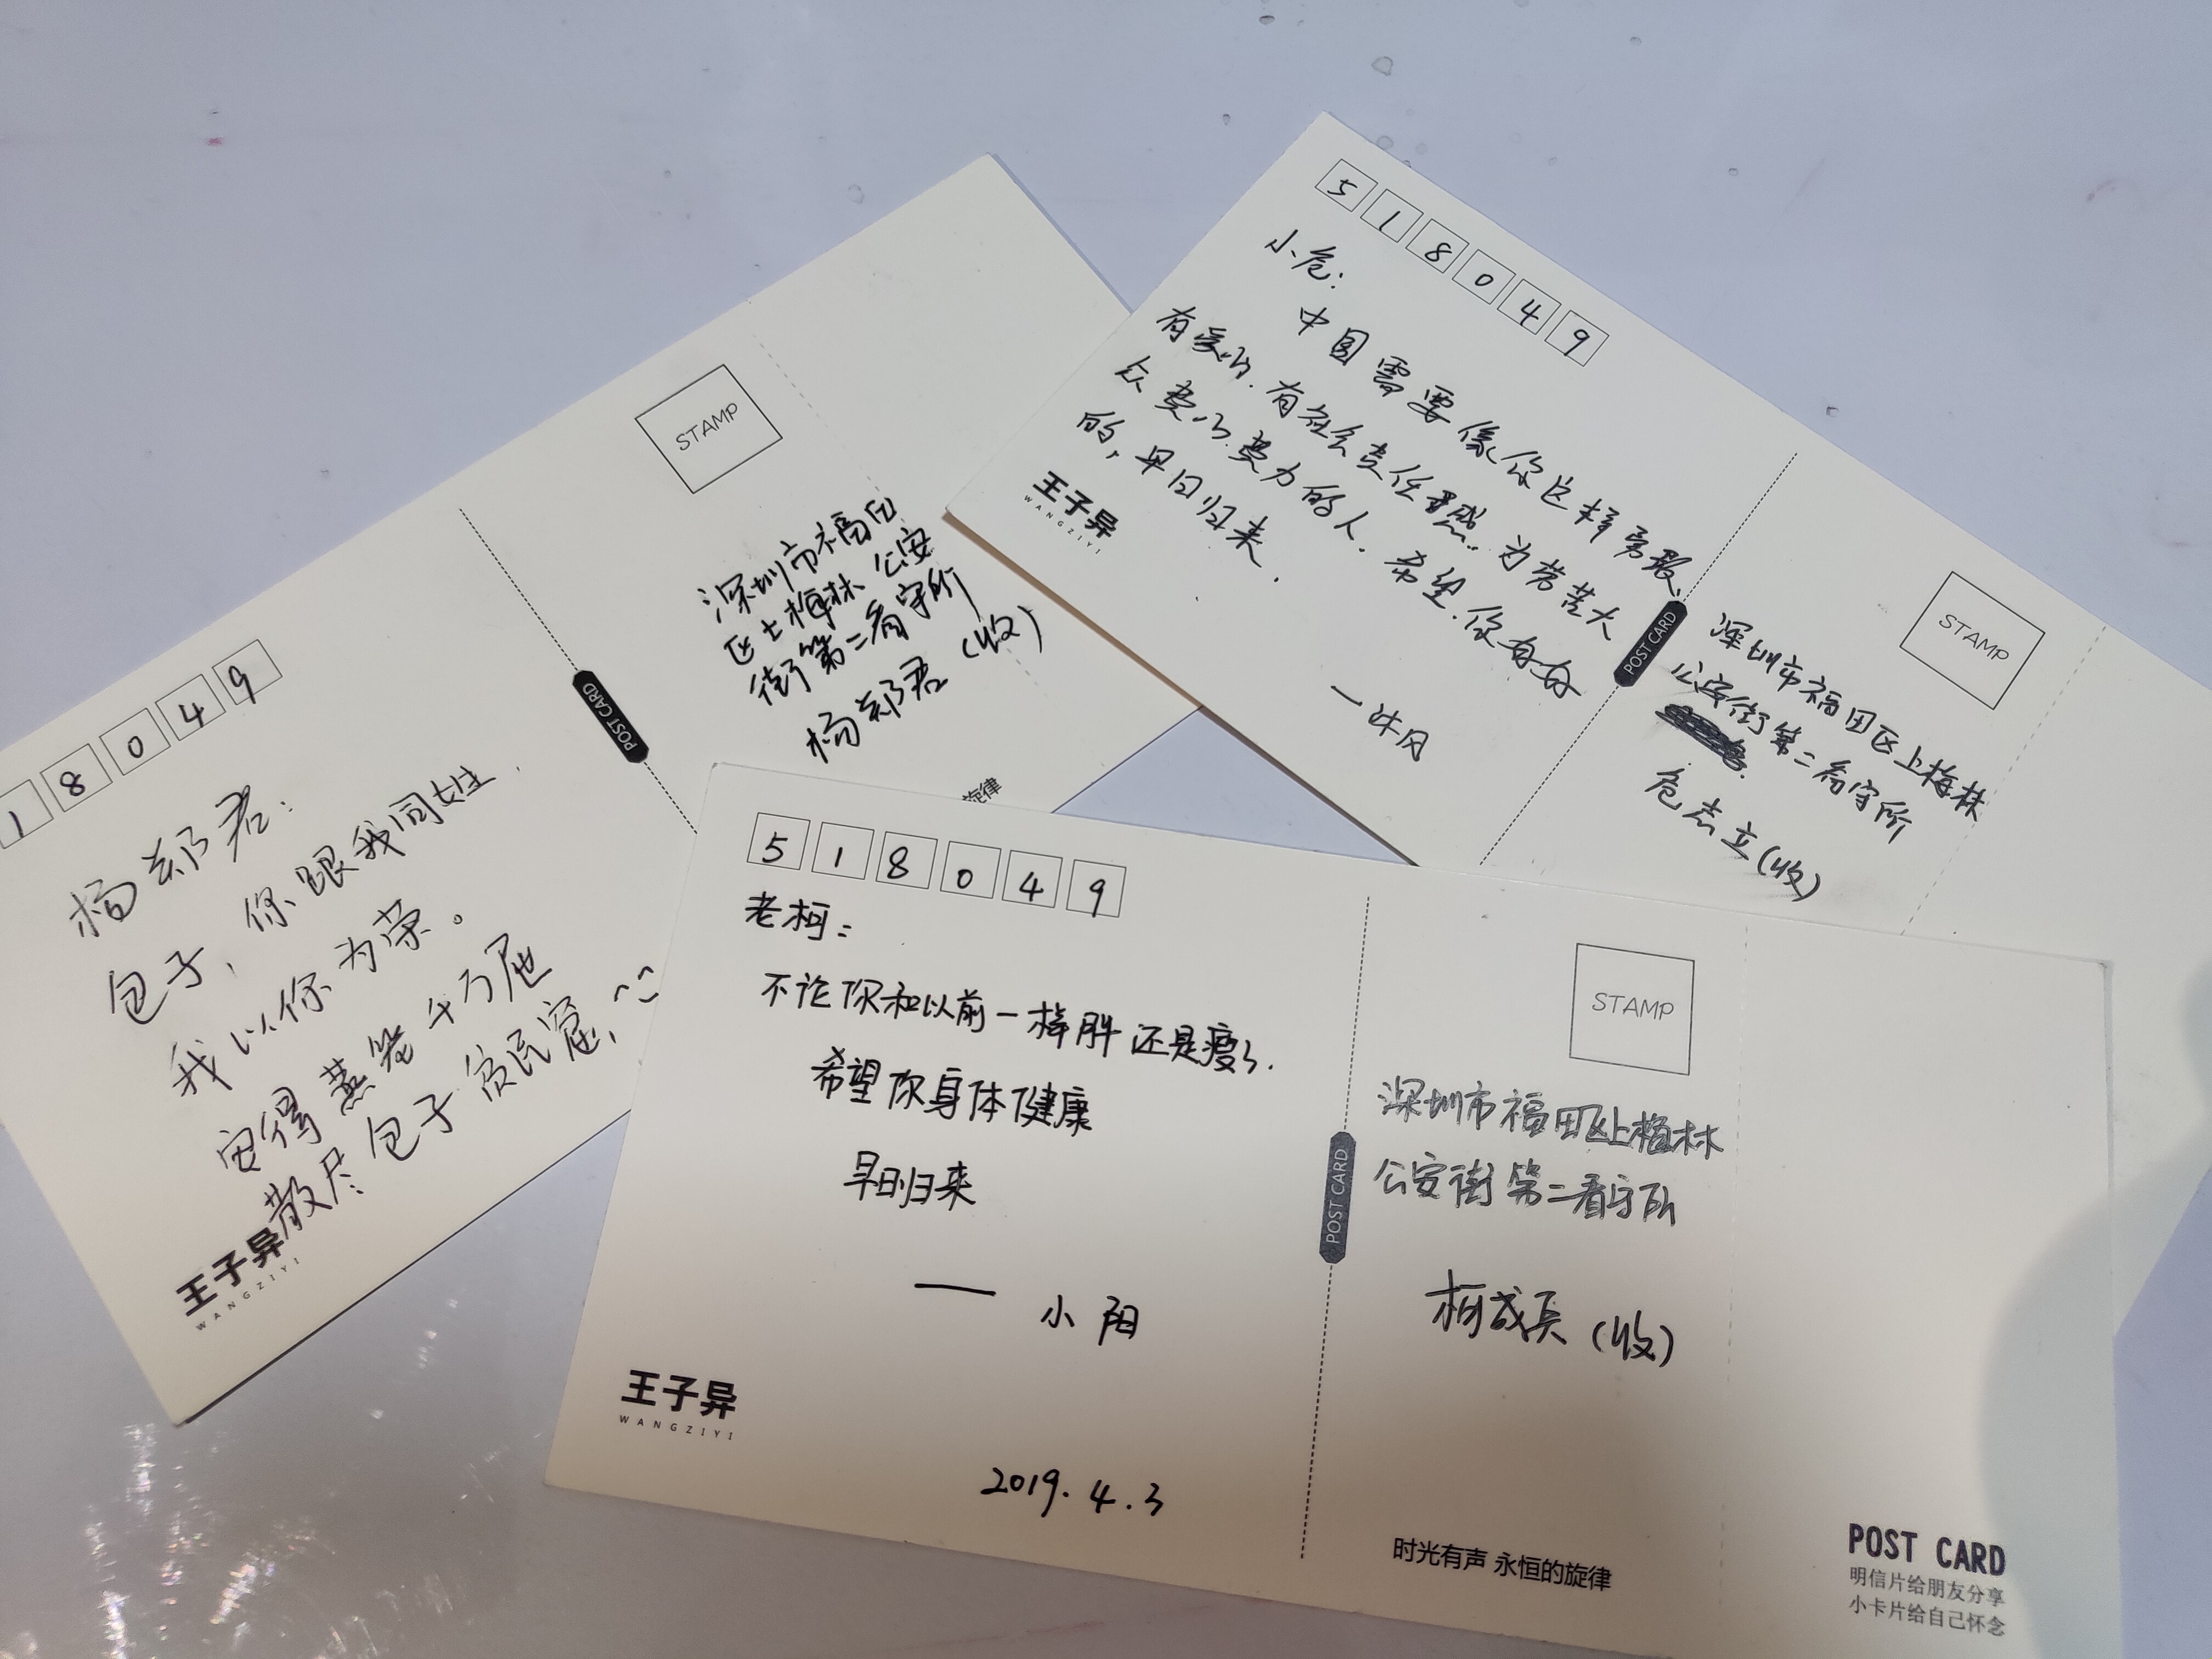 1 8 0 4 9
杨郑君：
包子，你跟我同姓，
我以你为荣。
安得蒸笼千万屉
散尽包子贫民窟，
王子异
WANGZIYI
POST CARD
STAMP
深圳市福田
区上梅林公安
街第二看守所
杨郑君（收）
旋律
5 1 8 0 4 9
小危：
中国需要像你这样勇敢、
有爱心、有社会责任感、为劳苦大
众费心费力的人。希望你好好
的，早日归来。
—沐风
王子异
WANGZIYI
POST CARD
STAMP
深圳市福田区上梅林
公安街第二看守所
危志立（收）
5 1 8 0 4 9
老柯：
不论你和以前一样胖还是瘦了，
希望你身体健康
早日归来
—— 小阳
王子异
WANGZIYI
2019.4.3
POST CARD
STAMP
深圳市福田区上梅林
公安街第二看守所
柯成兵（收）
时光有声 永恒的旋律
POST CARD
明信片给朋友分享
小卡片给自己怀念